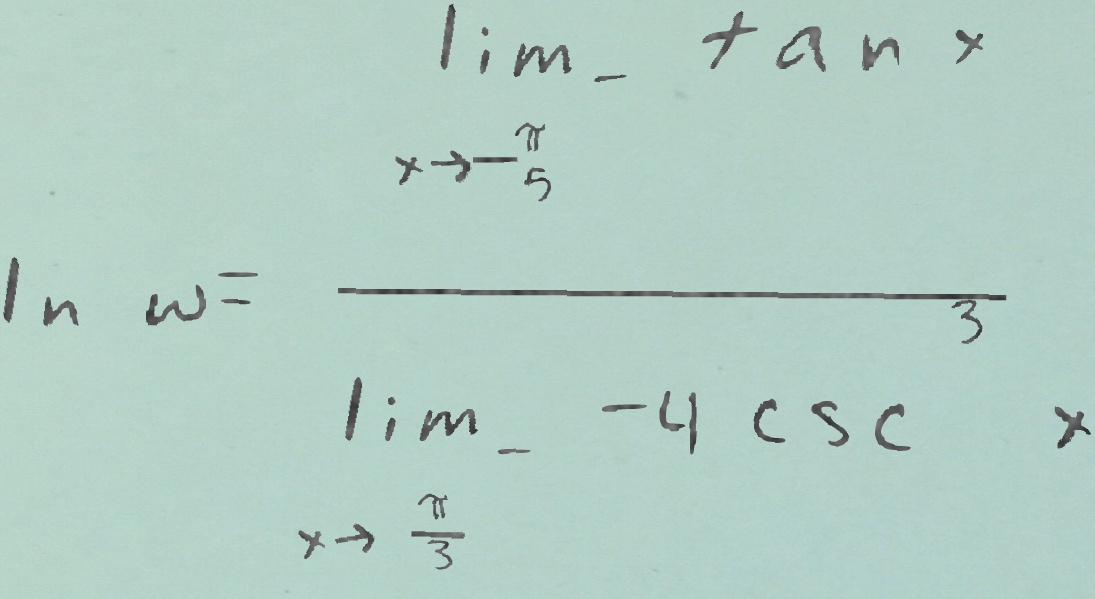 \ln w = \frac{\lim_{x \to -\frac{\pi}{5}^{-}} \tan x}{\lim_{x \to \frac{\pi}{3}^{-}} -4 \csc^{3} x}